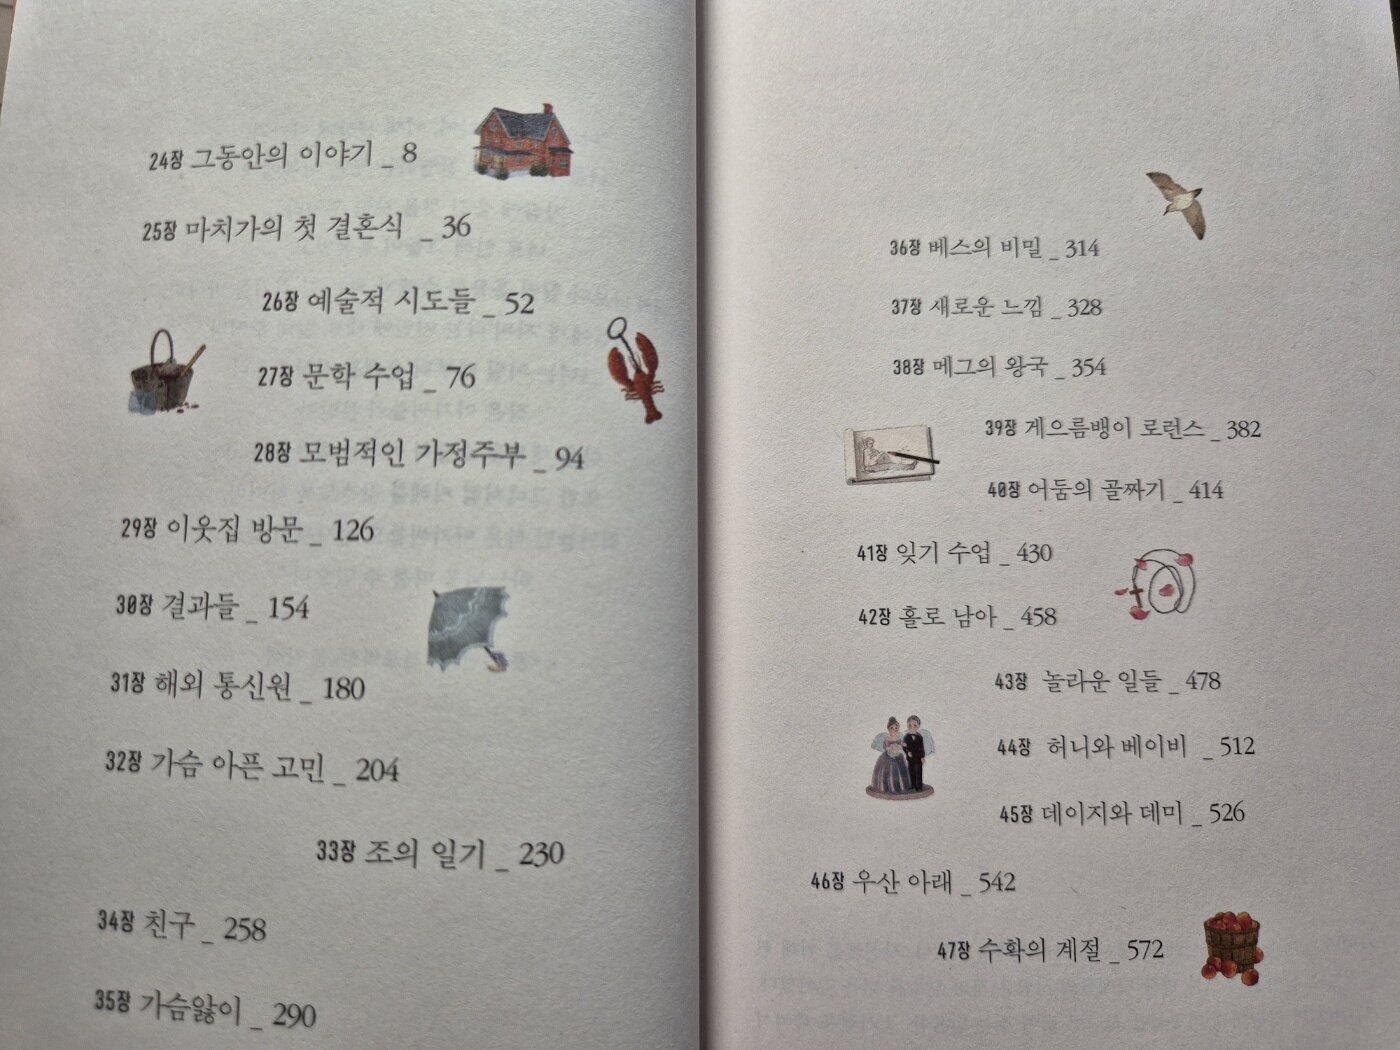 24장 그동안의 이야기 _ 8
25장 마치가의 첫 결혼식 _ 36
26장 예술적 시도들 _ 52
27장 문학 수업 _ 76
28장 모범적인 가정주부 _ 94
29장 이웃집 방문 _ 126
30장 결과들 _ 154
31장 해외 통신원 _ 180
32장 가슴 아픈 고민 _ 204
33장 조의 일기 _ 230
34장 친구 _ 258
35장 가슴앓이 _ 290
36장 베스의 비밀 _ 314
37장 새로운 느낌 _ 328
38장 메그의 왕국 _ 354
39장 게으름뱅이 로런스 _ 382
40장 어둠의 골짜기 _ 414
41장 잊기 수업 _ 430
42장 홀로 남아 _ 458
43장 놀라운 일들 _ 478
44장 허니와 베이비 _ 512
45장 데이지와 데미 _ 526
46장 우산 아래 _ 542
47장 수확의 계절 _ 572